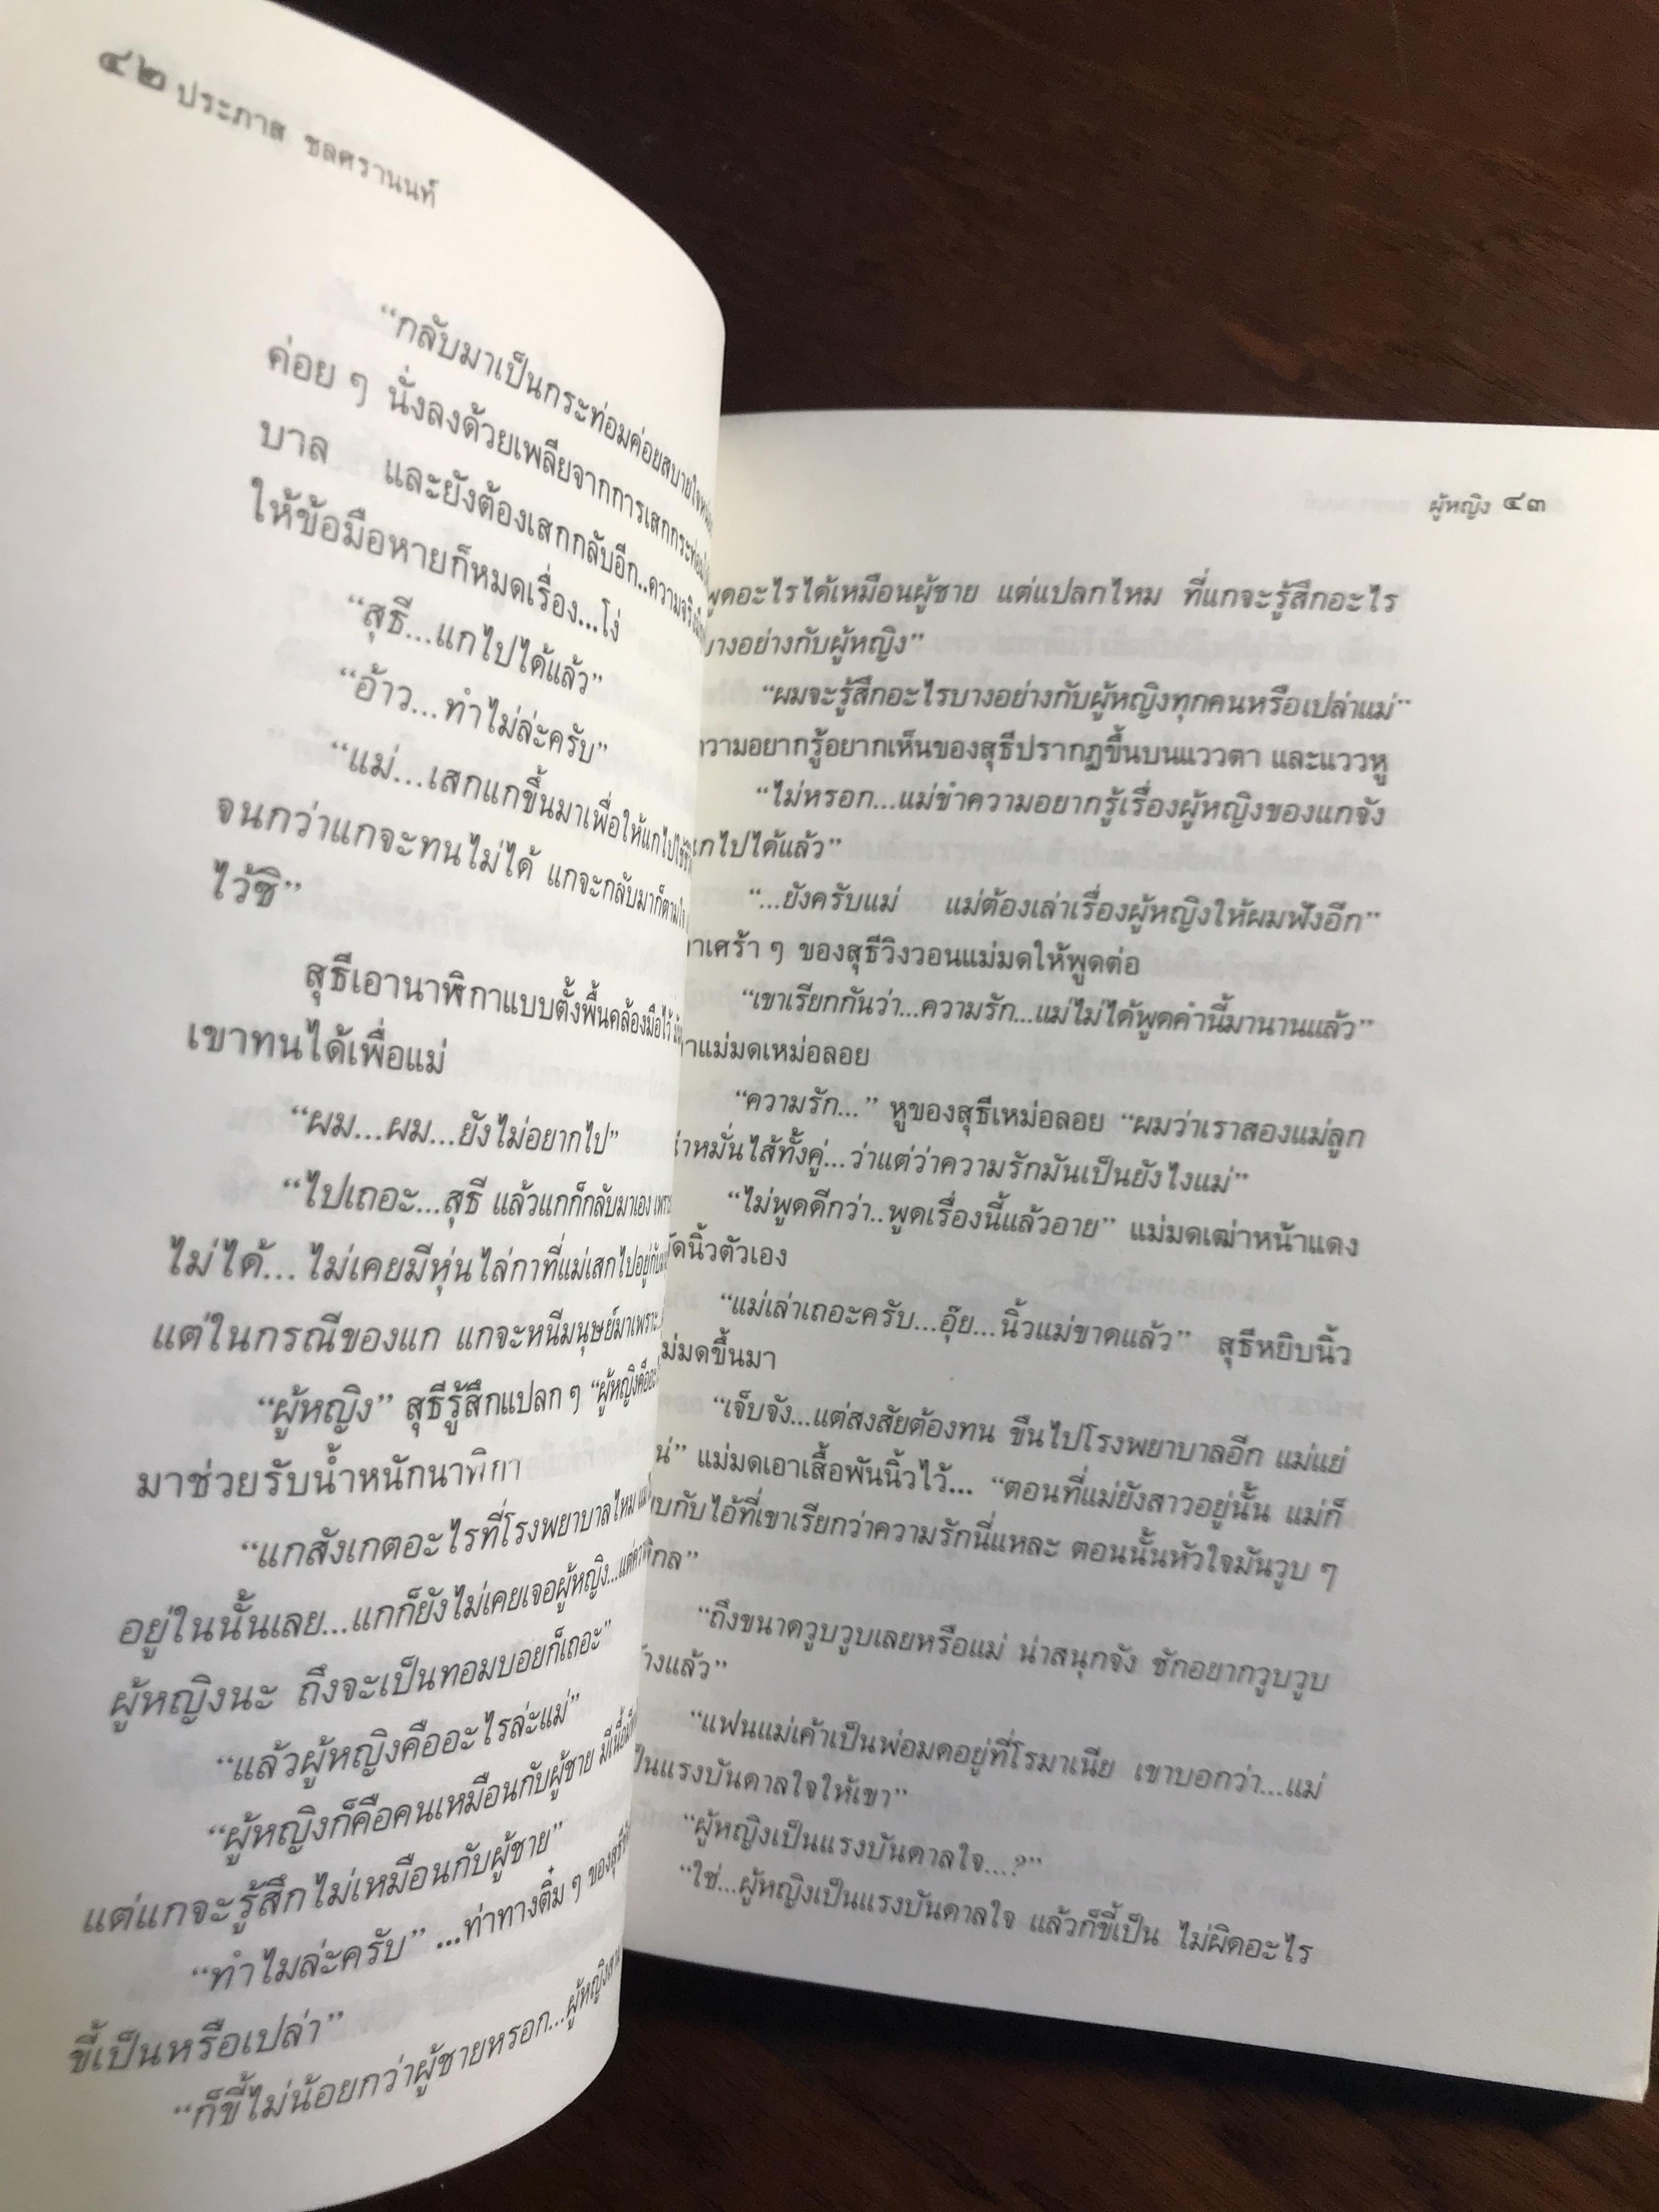 ๔๒ ประภาส ชลศรานนท์
“กลับมาเป็นกระท่อมค่อยสบายใจ
ค่อย ๆ นั่งลงด้วยเพลียจากการเสกกระท่อม
บาล และยังต้องเสกกลับอีก..ความจริง
ให้ข้อมือหายก็หมดเรื่อง...โง่
“สุธี...แกไปได้แล้ว”
“อ้าว...ทำไม่ล่ะครับ”
“แม่...เสกแกขึ้นมาเพื่อให้แกไปใช้
จนกว่าแกจะทนไม่ได้ แกจะกลับมาก็ตามใจ
ไว้ซิ”
สุธีเอานาฬิกาแบบตั้งพื้นคล้องมือไว้
เขาทนได้เพื่อแม่
“ผม...ผม...ยังไม่อยากไป”
“ไปเถอะ...สุธี แล้วแกก็กลับมาเอง
ไม่ได้...ไม่เคยมีหุ่นไล่กาที่แม่เสกไปอยู่กับ
แต่ในกรณีของแก แกจะหนีมนุษย์มาเพราะ
“ผู้หญิง” สุธีรู้สึกแปลก ๆ “ผู้หญิงคือ
มาช่วยรับน้ำหนักนาฬิกา
“แกสังเกตอะไรที่โรงพยาบาลไหม
อยู่ในนั้นเลย...แกก็ยังไม่เคยเจอผู้หญิง...แต่
ผู้หญิงนะ ถึงจะเป็นทอมบอยก็เถอะ”
“แล้วผู้หญิงคืออะไรล่ะแม่”
“ผู้หญิงก็คือคนเหมือนกับผู้ชาย
แต่แกจะรู้สึกไม่เหมือนกับผู้ชาย”
“ทำไมล่ะครับ” ...ท่าทางติ๋ม ๆ ของสุธี
ขี้เป็นหรือเปล่า”
“ก็ขี้ไม่น้อยกว่าผู้ชายหรอก...ผู้หญิง
ผู้หญิง ๔๓
พูดอะไรได้เหมือนผู้ชาย แต่แปลกไหม ที่แกจะรู้สึกอะไร
บางอย่างกับผู้หญิง”
“ผมจะรู้สึกอะไรบางอย่างกับผู้หญิงทุกคนหรือเปล่าแม่”
ความอยากรู้อยากเห็นของสุธีปรากฏขึ้นบนแววตา และแววหู
“ไม่หรอก...แม่ขำความอยากรู้เรื่องผู้หญิงของแกจัง
แกไปได้แล้ว”
“...ยังครับแม่ แม่ต้องเล่าเรื่องผู้หญิงให้ผมฟังอีก”
ตาเศร้า ๆ ของสุธีวิงวอนแม่มดให้พูดต่อ
“เขาเรียกกันว่า...ความรัก...แม่ไม่ได้พูดคำนี้มานานแล้ว”
ตาแม่มดเหม่อลอย
“ความรัก...” หูของสุธีเหม่อลอย “ผมว่าเราสองแม่ลูก
น่าหมั่นไส้ทั้งคู่...ว่าแต่ว่าความรักมันเป็นยังไงแม่”
“ไม่พูดดีกว่า..พูดเรื่องนี้แล้วอาย” แม่มดเฒ่าหน้าแดง
กัดนิ้วตัวเอง
“แม่เล่าเถอะครับ...อุ๊ย...นิ้วแม่ขาดแล้ว” สุธีหยิบนิ้ว
แม่มดขึ้นมา
“เจ็บจัง...แต่สงสัยต้องทน ขืนไปโรงพยาบาลอีก แม่แย่
แน่” แม่มดเอาเสื้อพันนิ้วไว้... “ตอนที่แม่ยังสาวอยู่นั้น แม่ก็
พบกับไอ้ที่เขาเรียกว่าความรักนี่แหละ ตอนนั้นหัวใจมันวูบ ๆ
พิกล”
“ถึงขนาดวูบวูบเลยหรือแม่ น่าสนุกจัง ชักอยากวูบวูบ
บ้างแล้ว”
“แฟนแม่เค้าเป็นพ่อมดอยู่ที่โรมาเนีย เขาบอกว่า...แม่
เป็นแรงบันดาลใจให้เขา”
“ผู้หญิงเป็นแรงบันดาลใจ...?”
“ใช่...ผู้หญิงเป็นแรงบันดาลใจ แล้วก็ขี้เป็น ไม่ผิดอะไร